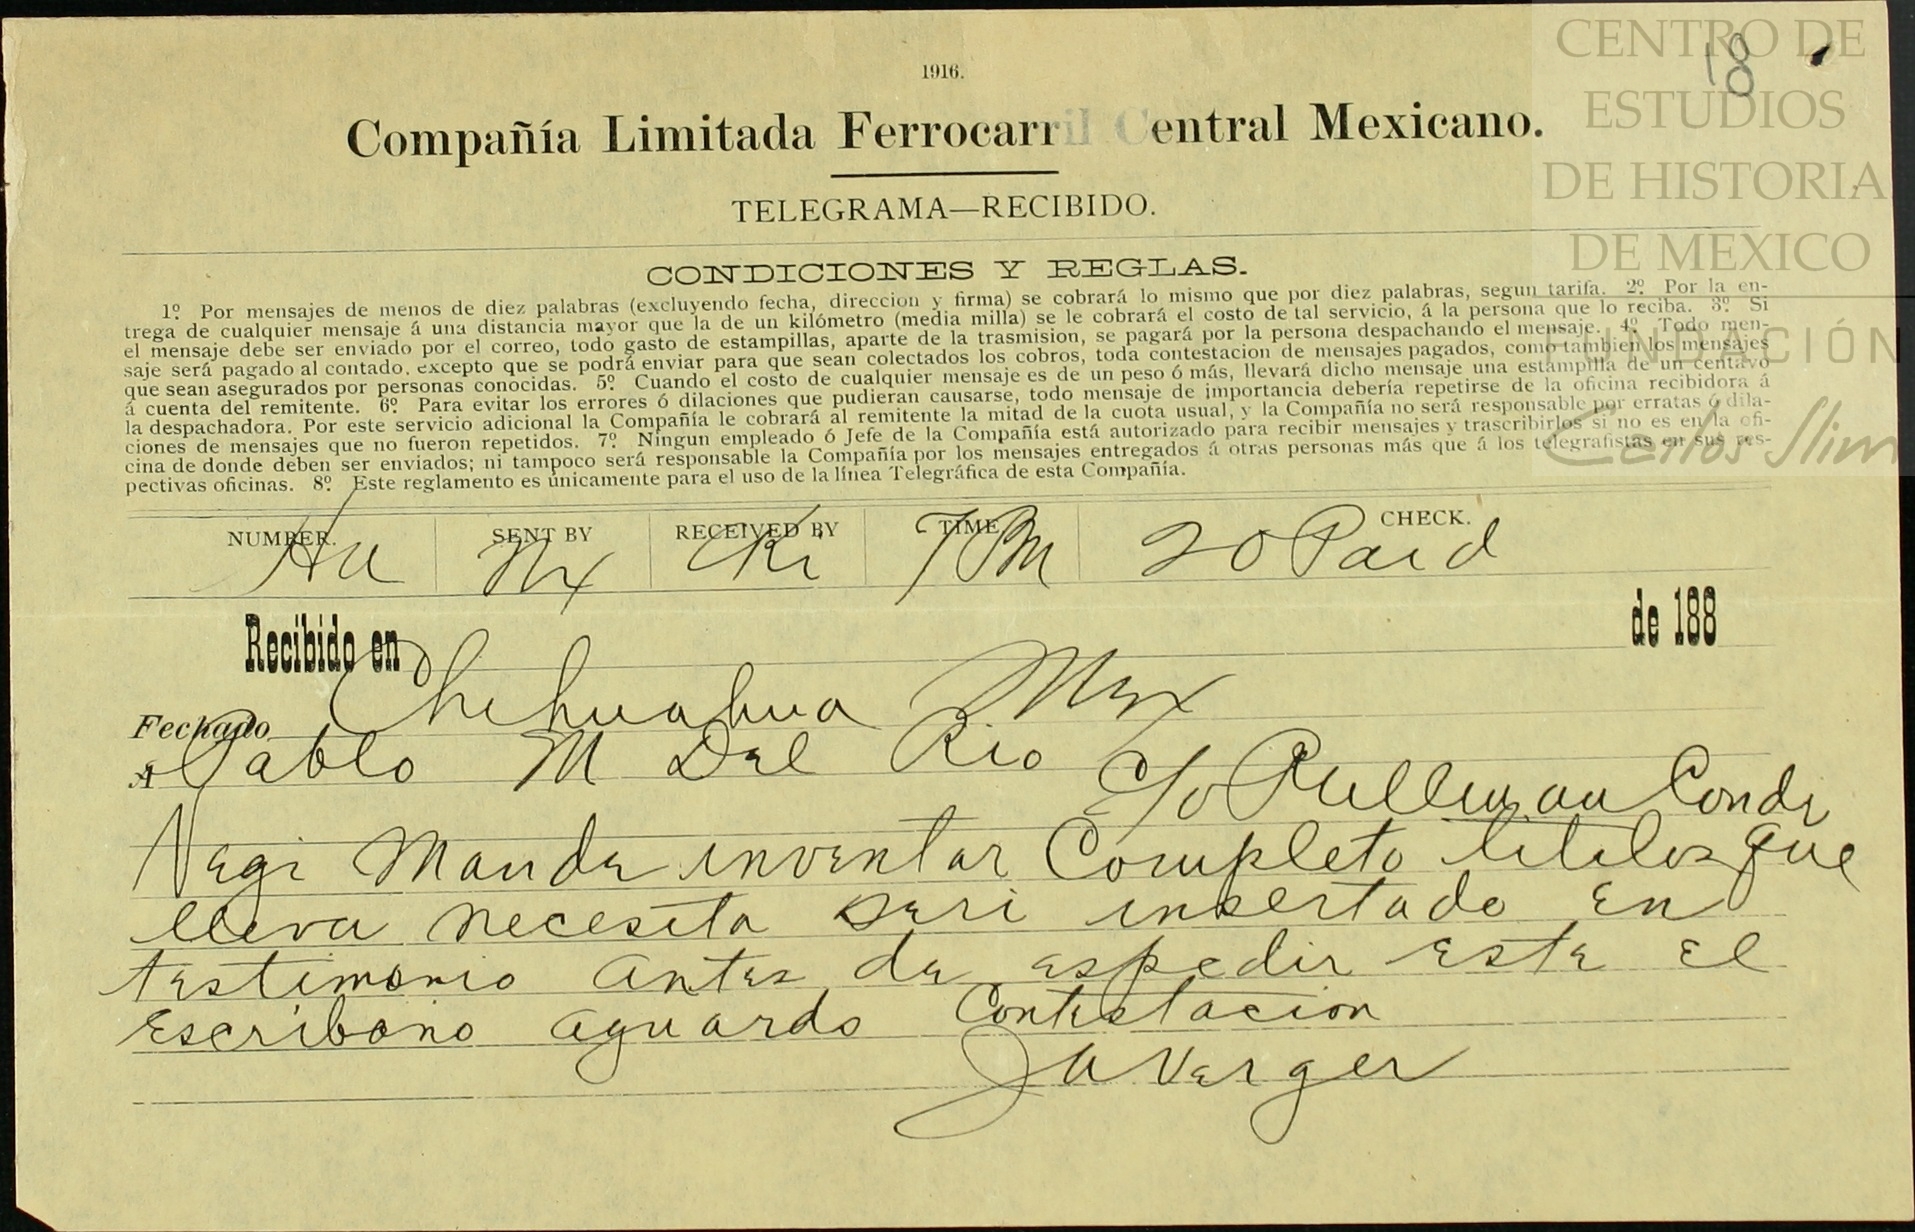 CENTRO DE
ESTUDIOS
DE HISTORIA
DE MEXICO
FUNDACIÓN
Carlos Slim
18
1916.
Compañía Limitada Ferrocarril Central Mexicano.
TELEGRAMA—RECIBIDO.
CONDICIONES Y REGLAS.
1º. Por mensajes de menos de diez palabras (excluyendo fecha, direccion y firma) se cobrará lo mismo que por diez palabras, segun tarifa. 2º. Por la en-
trega de cualquier mensaje á una distancia mayor que la de un kilómetro (media milla) se le cobrará el costo de tal servicio, á la persona que lo reciba. 3º. Si
el mensaje debe ser enviado por el correo, todo gasto de estampillas, aparte de la trasmision, se pagará por la persona despachando el mensaje. 4º. Todo men-
saje será pagado al contado, excepto que se podrá enviar para que sean colectados los cobros, toda contestacion de mensajes pagados, como tambien los mensajes
que sean asegurados por personas conocidas. 5º. Cuando el costo de cualquier mensaje es de un peso ó más, llevará dicho mensaje una estampilla de un centavo
á cuenta del remitente. 6º. Para evitar los errores ó dilaciones que pudieran causarse, todo mensaje de importancia debería repetirse de la oficina recibidora á
la despachadora. Por este servicio adicional la Compañía le cobrará al remitente la mitad de la cuota usual, y la Compañía no será responsable por erratas ó dila-
ciones de mensajes que no fueron repetidos. 7º. Ningun empleado ó Jefe de la Compañía está autorizado para recibir mensajes y trascribirlos si no es en la ofi-
cina de donde deben ser enviados; ni tampoco será responsable la Compañía por los mensajes entregados á otras personas más que á los telegrafistas en sus res-
pectivas oficinas. 8º. Este reglamento es únicamente para el uso de la línea Telegráfica de esta Compañía.
NUMBER. SENT BY RECEIVED BY TIME CHECK.
7 PM 20 Paid
Recibido en de 188
Fechado Chihuahua Mex
A Pablo M Del Rio c/o Pullman Conde
Negi Mande inventar Completo titulos que
lleva necesita seri insertado en
testimonio antes de espedir este el
escribano aguardo Contestacion
JA Verger